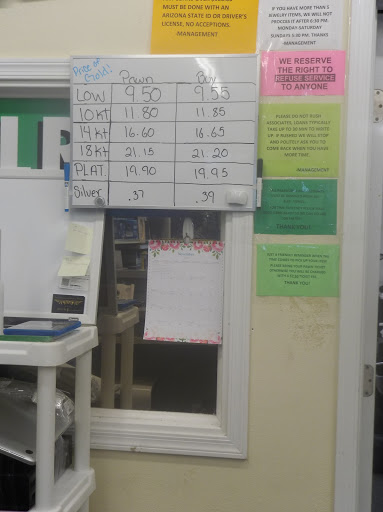 MUST BE DONE WITH AN
ARIZONA STATE ID OR DRIVER'S
LICENSE, NO ACCEPTIONS.
-MANAGEMENT
IF YOU HAVE MORE THAN 5
JEWELRY ITEMS, WE WILL NOT
PROCESS IT AFTER 6:30 PM.
MONDAY-SATURDAY
SUNDAYS 5:30 PM. THANKS
-MANAGEMENT
Price of Gold!
Pawn Buy
LOW 9.50 9.55
10 KT 11.80 11.85
14 KT 16.60 16.65
18 KT 21.15 21.20
PLAT. 19.90 19.95
Silver .37 .39
WE RESERVE
THE RIGHT TO
REFUSE SERVICE
TO ANYONE
PLEASE DO NOT RUSH
ASSOCIATES, LOANS TYPICALLY
TAKE UP TO 20 MIN TO WRITE
UP. IF RUSHED WE WILL STOP
AND POLITELY ASK YOU TO
COME BACK WHEN YOU HAVE
MORE TIME.
-MANAGEMENT
THANK YOU!
JUST A FRIENDLY REMINDER WHEN YOU
THANK YOU!